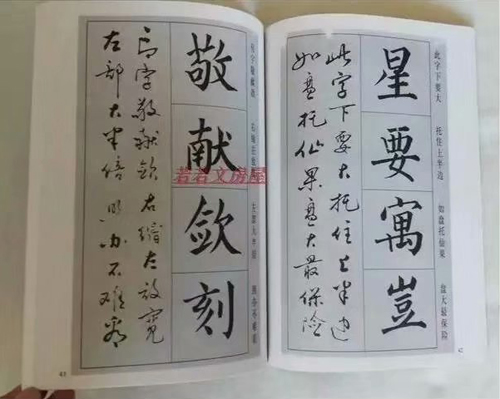 此字下要大 托住上半边 如盘托仙果 盘大最保险
星要寓豈
此字下要大托住上半边
如盘托仙果盘大最保险
字敬献 右缩左放宽 左部大半倍 照办不难看
敬献歛刻
字敬献歛右缩左放宽
左部大半倍照办不难看
文房